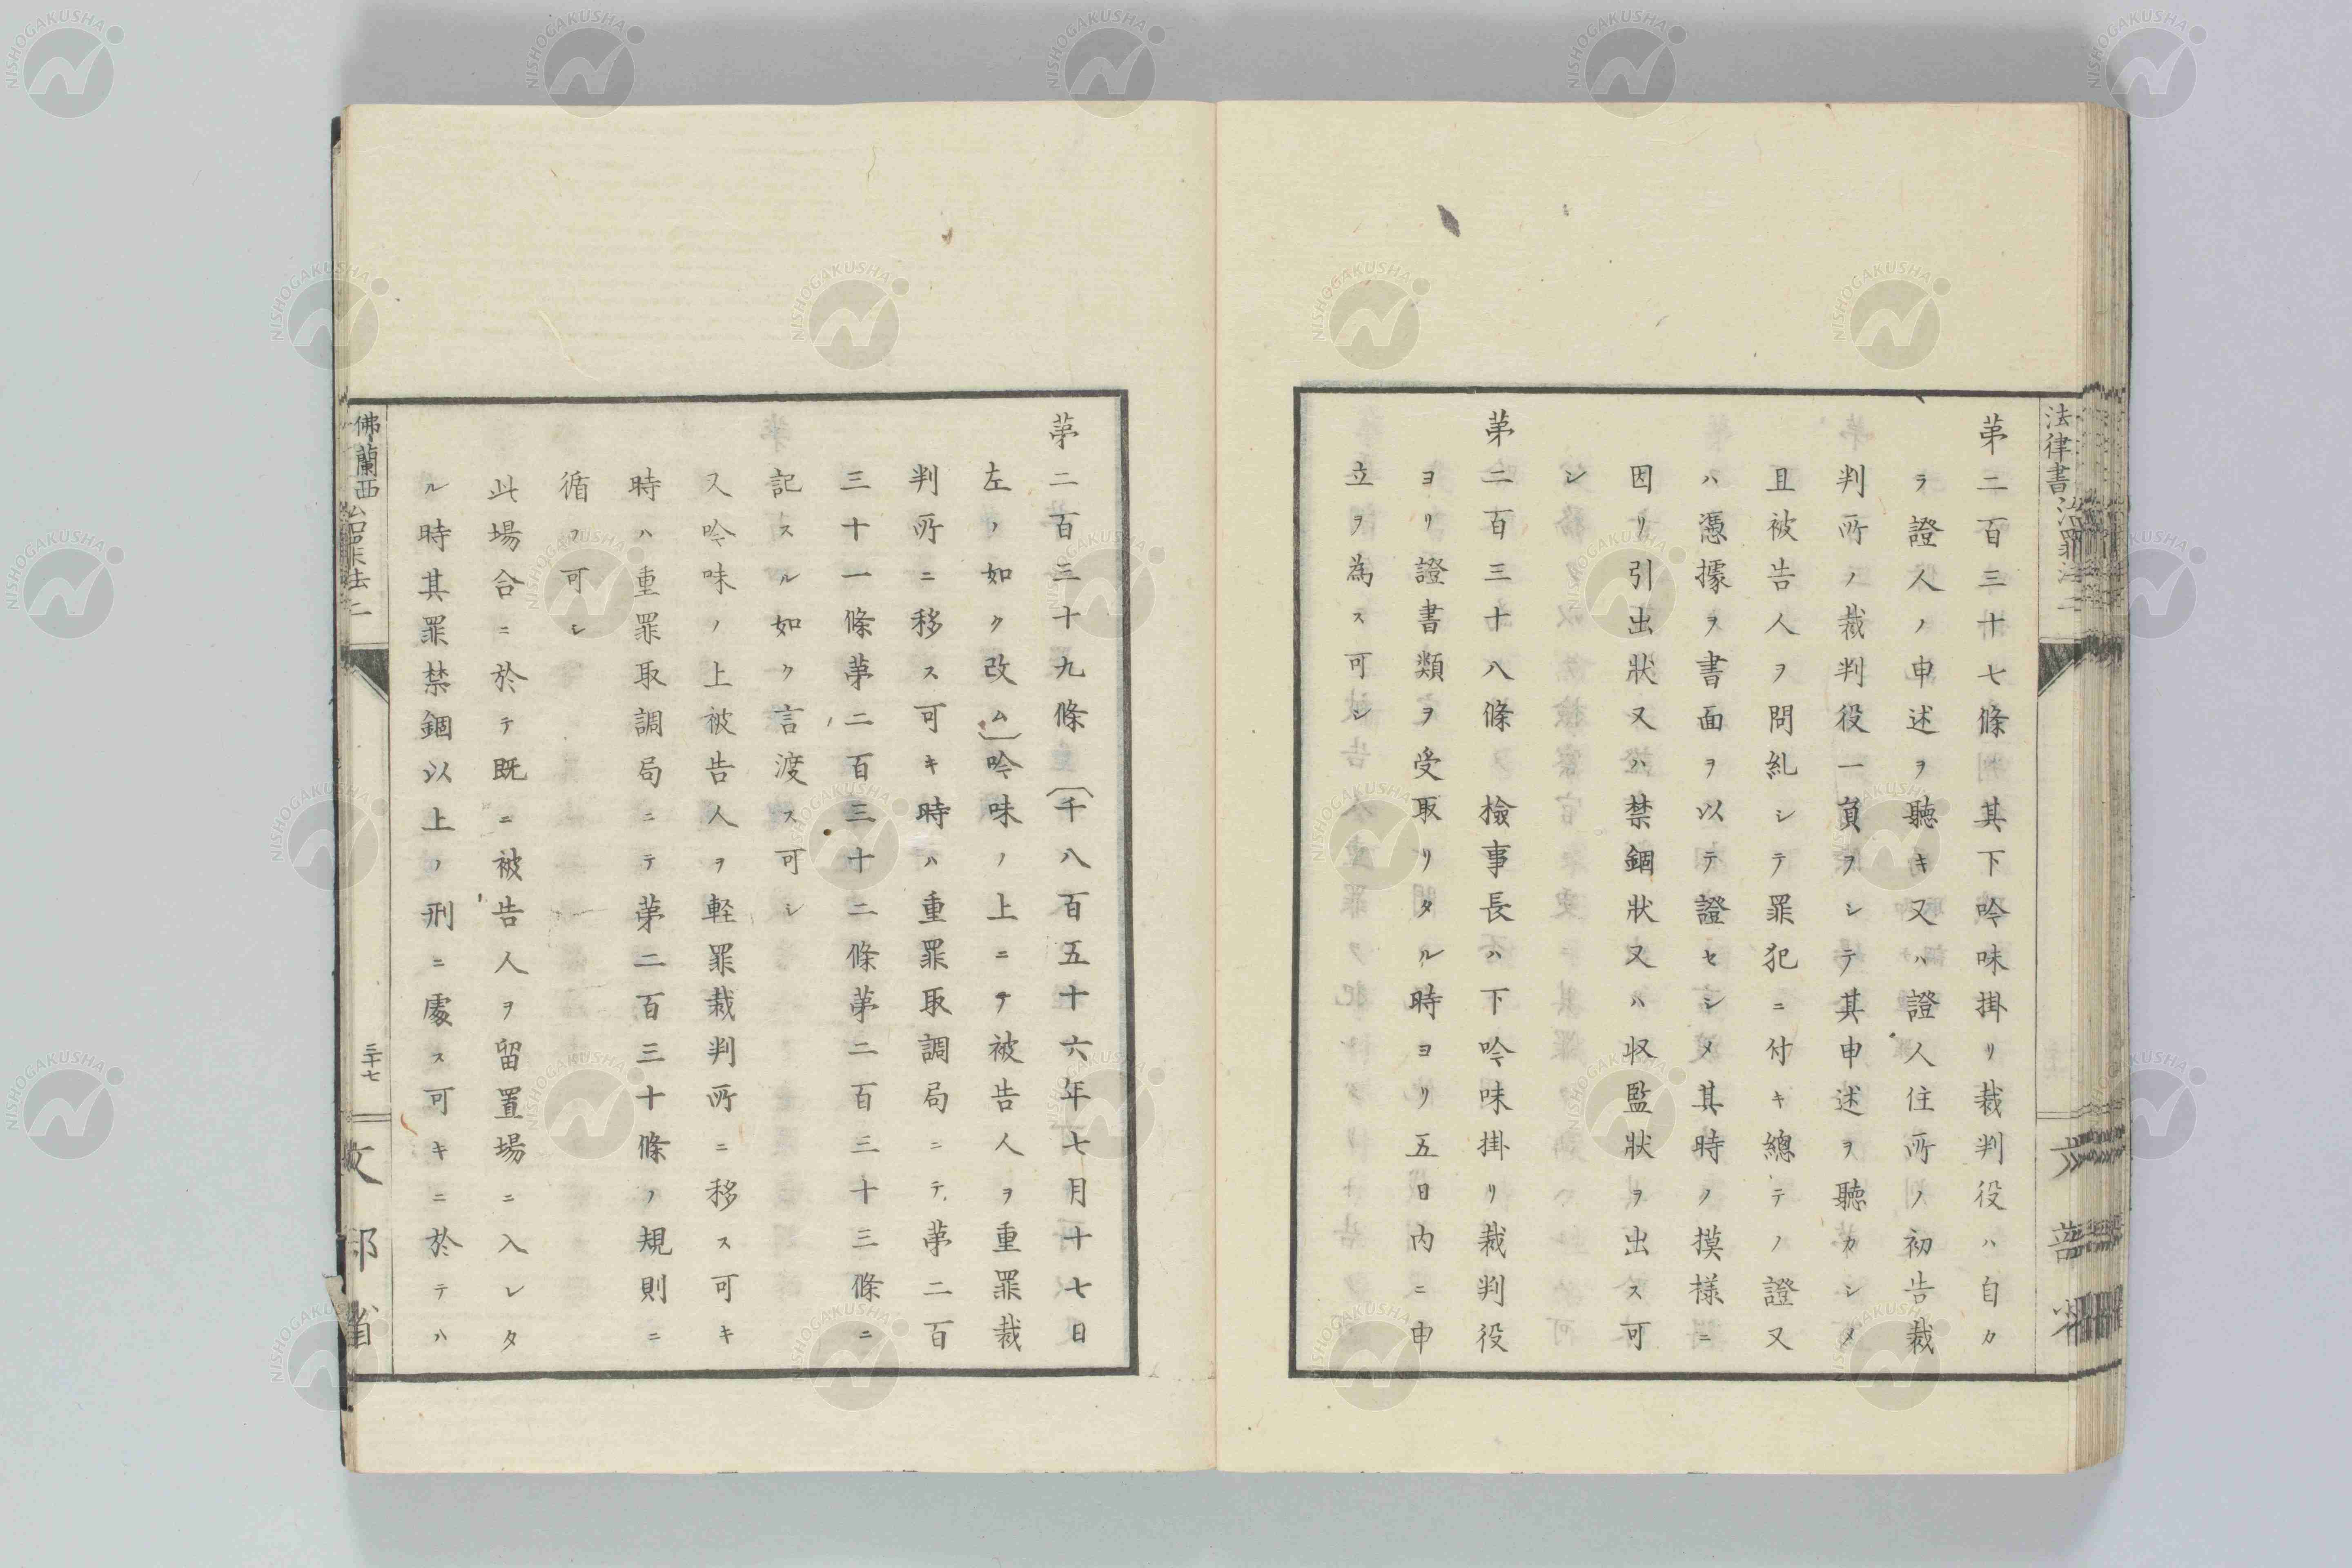 法律書 治罪法二
第二百三十七條其下吟味掛リ裁判役ハ自カ
ラ證人ノ申述ヲ聽キ又ハ證人住所ノ初告裁
判所ノ裁判役一員ヲシテ其申述ヲ聽カシメ
且被告人ヲ問糺シテ罪犯ニ付キ總テノ證又
ハ憑據ヲ書面ヲ以テ證セシメ其時ノ摸樣ニ
因リ引出狀又ハ禁錮狀又ハ収監狀ヲ出ス可
シ
第二百三十八條檢事長ハ下吟味掛リ裁判役
ヨリ證書類ヲ受取リタル時ヨリ五日内ニ申
立ヲ為ス可シ
第二百三十九條〔千八百五十六年七月十七日
左ノ如ク改ム〕吟味ノ上ニテ被告人ヲ重罪裁
判所ニ移ス可キ時ハ重罪取調局ニテ第二百
三十一條第二百三十二條第二百三十三條ニ
記スル如ク言渡ス可シ
又吟味ノ上被告人ヲ軽罪裁判所ニ移ス可キ
時ハ重罪取調局ニテ第二百三十條ノ規則ニ
循フ可シ
此場合ニ於テ既ニ被告人ヲ留置場ニ入レタ
ル時其罪禁錮以上ノ刑ニ處ス可キニ於テハ
佛蘭西 治罪法二
三十七
文部省
NISHOGAKUSHA